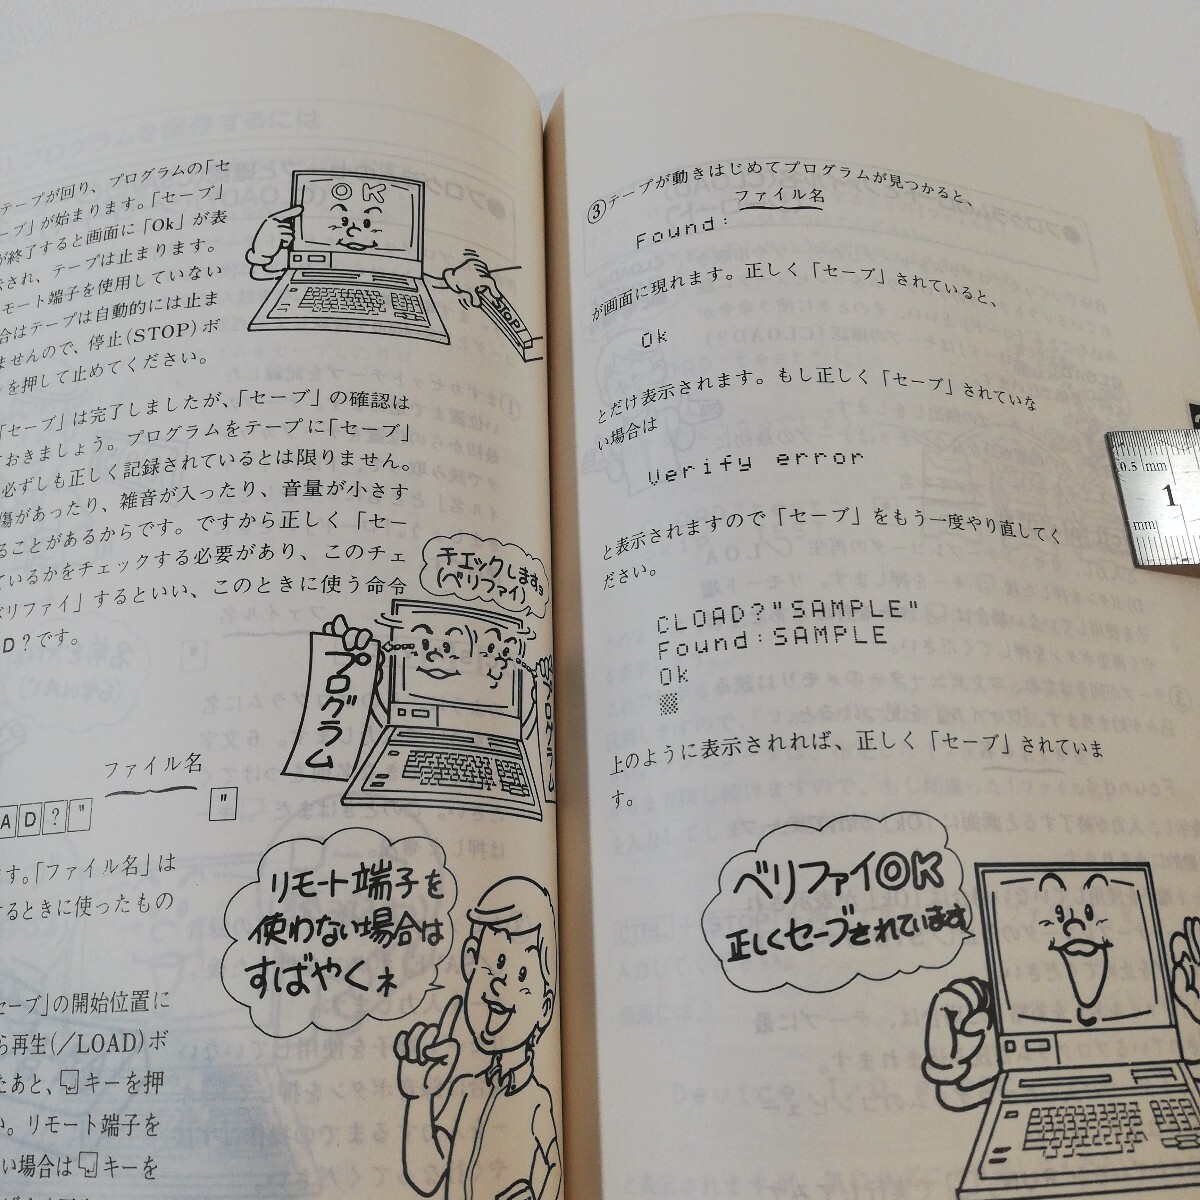 テープが回り、プログラムの「セ
ーブ」が始まります。「セーブ」
が終了すると画面に「Ok」が表
示され、テープは止まります。
モート端子を使用していない
合はテープは自動的には止ま
ませんので、停止(STOP)ボ
ンを押して止めてください。
OK
STOP
「セーブ」は完了しましたが、「セーブ」の確認は
ておきましょう。プログラムをテープに「セーブ」
必ずしも正しく記録されているとは限りません。
傷があったり、雑音が入ったり、音量が小さす
ることがあるからです。ですから正しく「セー
ているかをチェックする必要があり、このチェ
ベリファイ」するといい、このときに使う命令
D?です。
チェックします。
(ベリファイ)
プログラム
プログラム
ファイル名
AD?" "
す。「ファイル名」は
するときに使ったもの
リモート端子を
使わない場合は
すばやくネ
セーブ」の開始位置に
ら再生(/LOAD)ボ
たあと、キーを押
い。リモート端子を
い場合はキーを
③テープが動きはじめてプログラムが見つかると、
ファイル名
Found:
が画面に現れます。正しく「セーブ」されていると、
Ok
とだけ表示されます。もし正しく「セーブ」されていな
い場合は
Verify error
と表示されますので「セーブ」をもう一度やり直してく
ださい。
CLOAD?"SAMPLE"
Found:SAMPLE
Ok
上のように表示されれば、正しく「セーブ」されていま
す。
ベリファイOK
正しくセーブされています
0.5 mm
1
mm